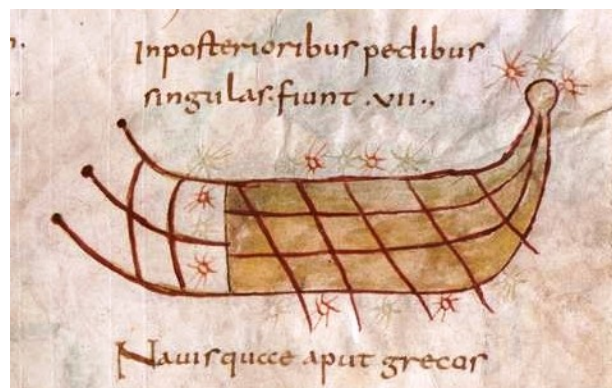 In posterioribus pedibus
singulas · fiunt · vii ·,
Navis quae aput grecos